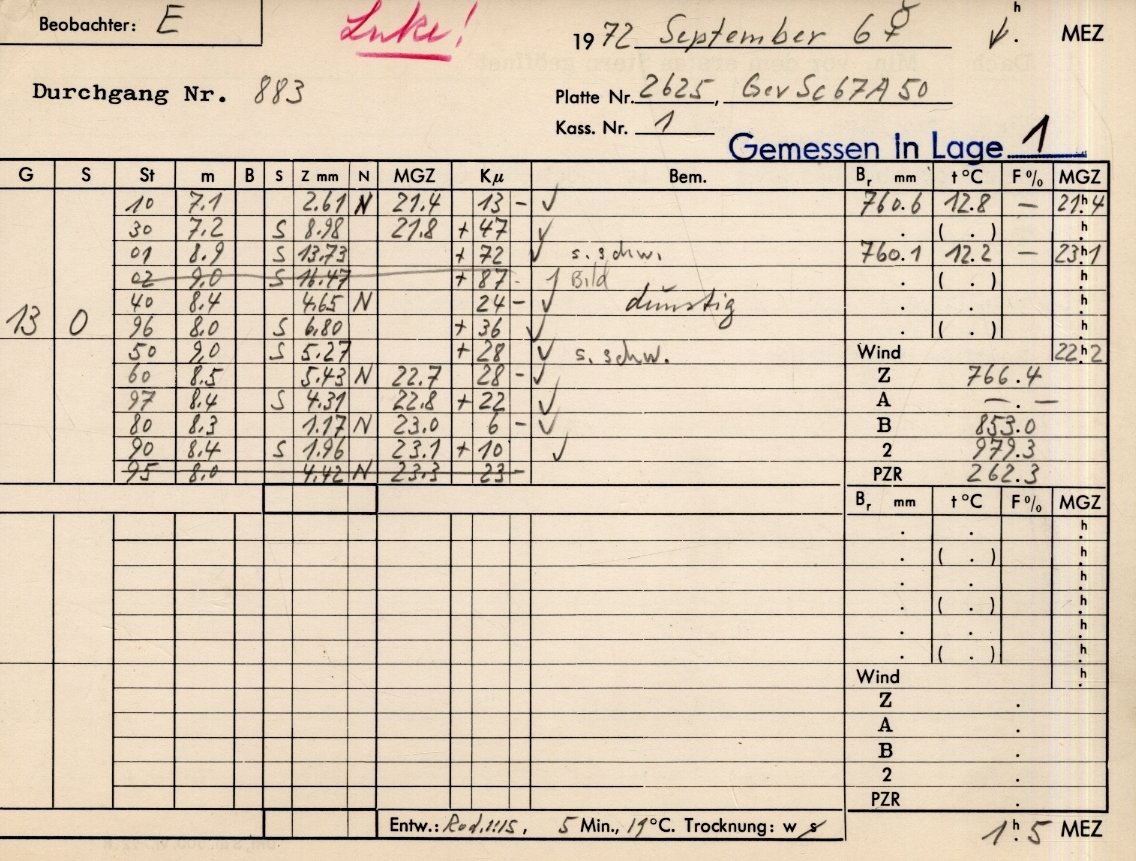 Beobachter: E
Luke!
1972 September 6 ☿ h . MEZ
Durchgang Nr. 883
Platte Nr. 2625, Gev Sc 67A50
Kass. Nr. 1
Gemessen in Lage 1
G S St m B S Z mm N MGZ Kμ Bem. Br mm t °C F % MGZ
10 7.1 2.61 N 21.4 13 - ✓ 760.6 12.8 — 21h.4
30 7.2 S 8.98 21.8 + 47 ✓ . ( . ) h.
01 8.9 S 13.73 + 72 ✓ s. schw. 760.1 12.2 — 23h.1
02 9.0 S 16.47 + 87 - Bild . ( . ) h.
40 8.4 4.65 N 24 - ✓ dunstig . . h.
13 0 96 8.0 S 6.80 + 36 ✓ . ( . ) h.
50 9.0 S 5.27 + 28 ✓ s. schw. Wind 22h.2
60 8.5 5.43 N 22.7 28 - ✓ Z 766.4
97 8.4 S 4.31 22.8 + 22 ✓ A — . —
80 8.3 1.17 N 23.0 6 - ✓ B 853.0
90 8.4 S 1.96 23.1 + 10 ✓ 2 979.3
95 8.0 4.42 N 23.3 23 - PZR 262.3
Br mm t °C F % MGZ
. . h.
. ( . ) h.
. . h.
. ( . ) h.
. . h.
. ( . ) h.
Wind h.
Z .
A .
B .
2 .
PZR .
Entw.: Rod. 1:15, 5 Min., 19°C. Trocknung: w s
1h.5 MEZ